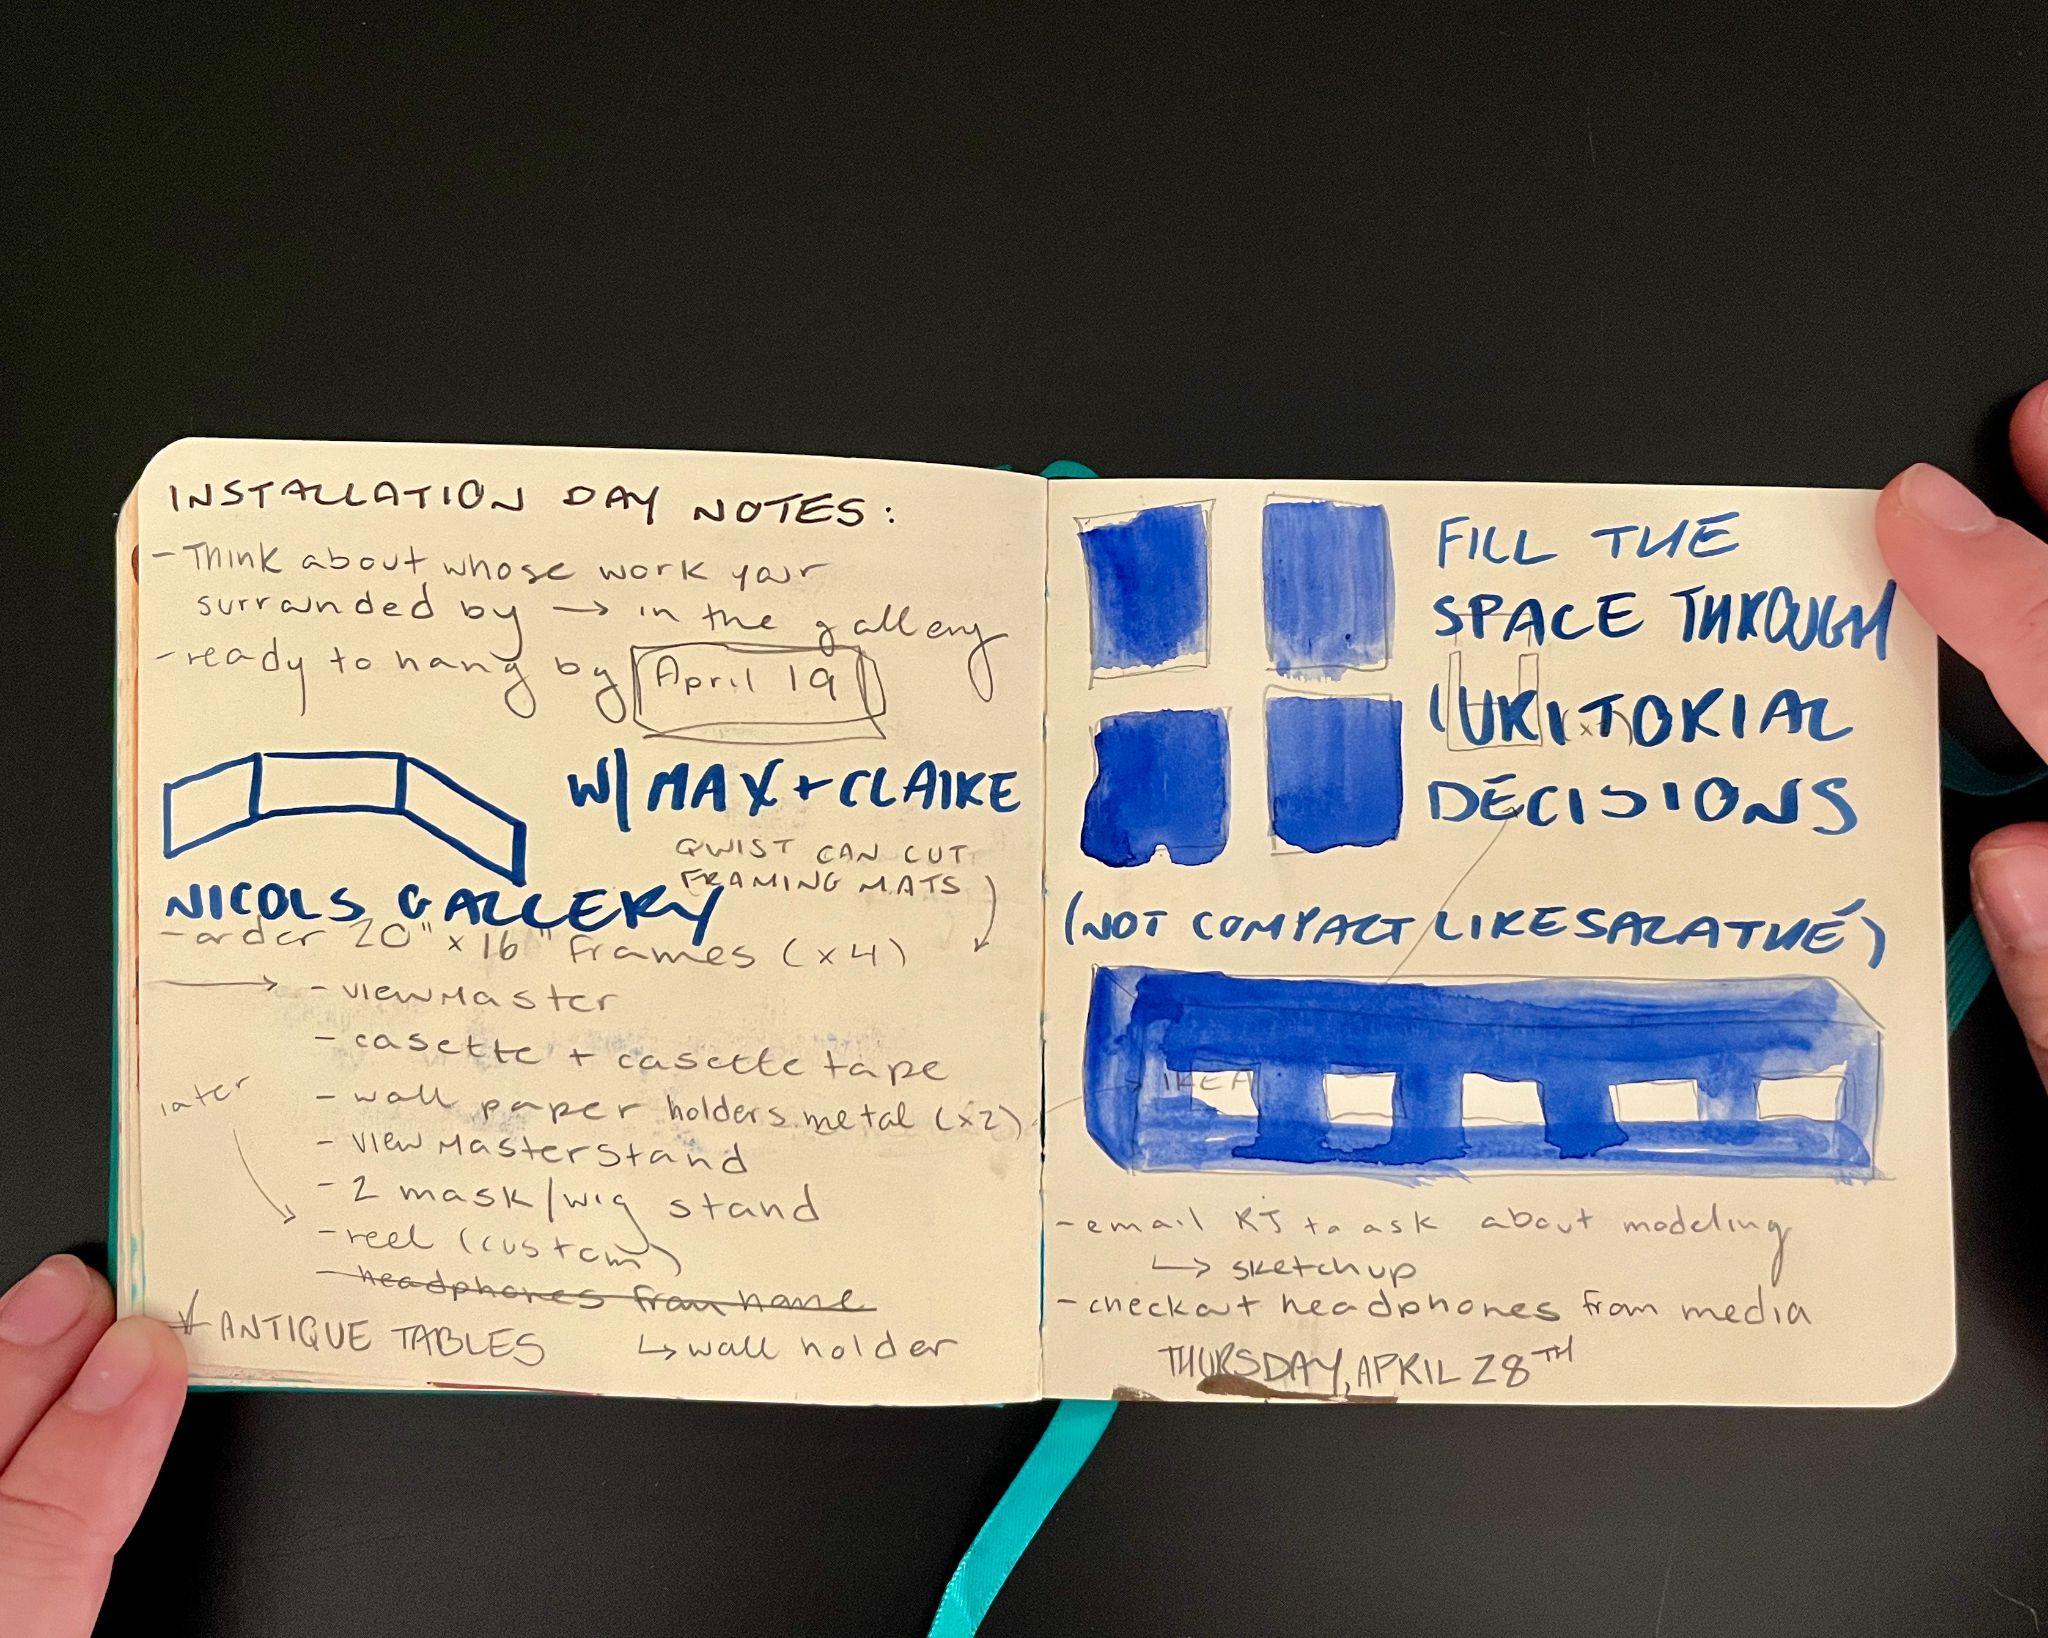 INSTALLATION DAY NOTES:
- Think about whose work your
surrounded by → in the gallery
- ready to hang by April 19
W/ MAX + CLAIRE
QWIST CAN CUT
FRAMING MATS
NICOLS GALLERY
- order 20" x 16" frames (x4)
→ - viewmaster
- casette + casette tape
later
- wall paper holders metal (x2)
- viewmaster stand
- 2 mask/wig stand
- reel (custom)
- headphones from home
ANTIQUE TABLES
↳ wall holder
FILL THE
SPACE THROUGH
CURITORIAL
DECISIONS
(NOT COMPACT LIKE SALATHÉ)
IKEA
- email RJ to ask about modeling
↳ sketchup
- checkout headphones from media
THURSDAY, APRIL 28TH